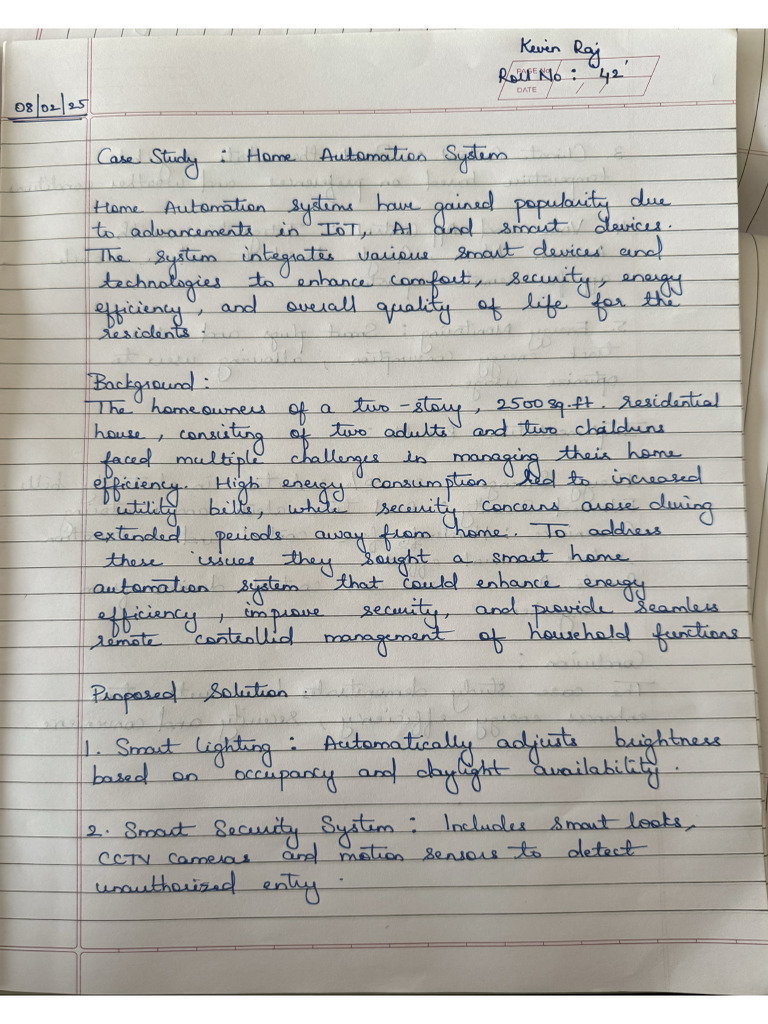 Kevin Raj
PAGE No.
Roll No : 42
DATE
08/02/25
Case Study : Home Automation System
Home Automation systems have gained popularity due
to advancements in IoT, AI and smart devices.
The system integrates various smart devices and
technologies to enhance comfort, security, energy
efficiency, and overall quality of life for the
residents.
Background :
The homeowners of a two-story, 2500 sq.ft. residential
house, consisting of two adults and two childrens
faced multiple challenges in managing their home
efficiency. High energy consumption led to increased
utility bills, while security concerns arose during
extended periods away from home. To address
these issues they sought a smart home
automation system that could enhance energy
efficiency, improve security, and provide seamless
remote controlled management of household functions
Proposed Solution.
1. Smart lighting : Automatically adjusts brightness
based on occupancy and daylight availability.
2. Smart Security System : Includes smart locks,
CCTV cameras and motion sensors to detect
unauthorized entry.